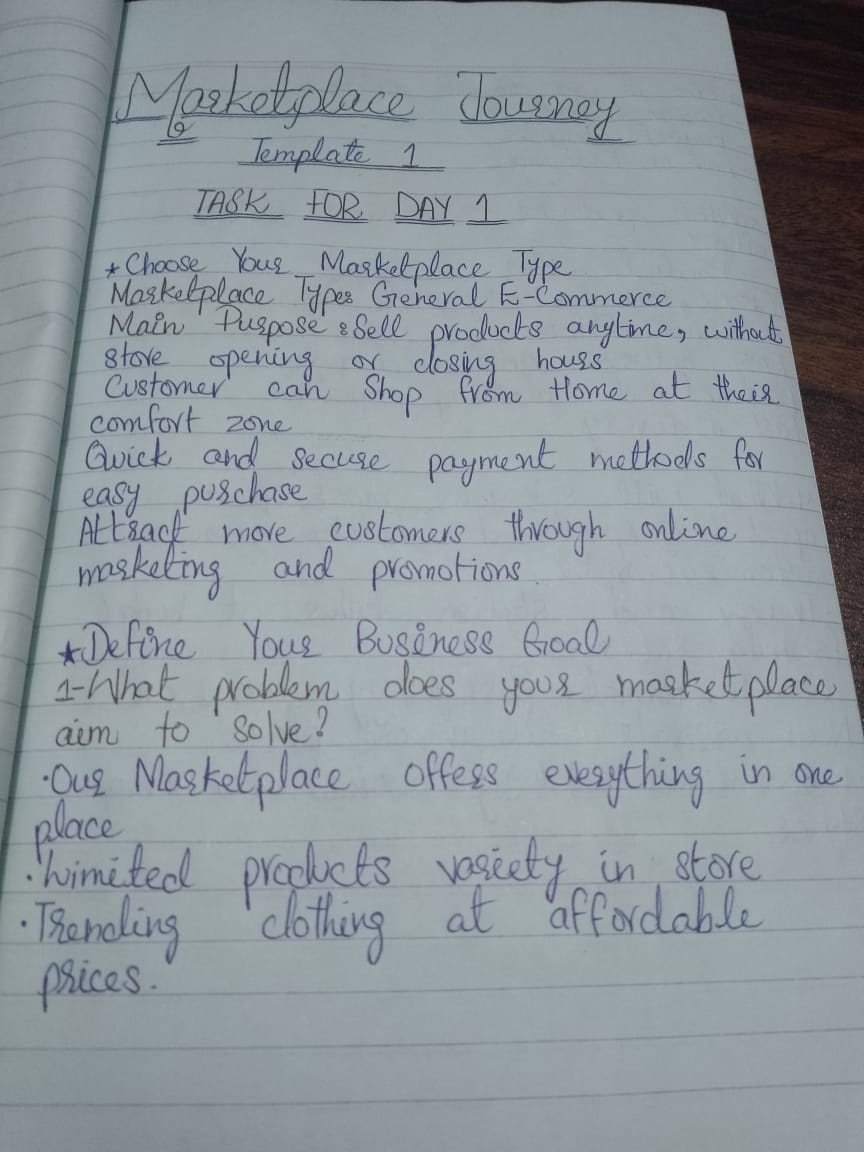 Marketplace Journey
Template 1
TASK FOR DAY 1
* Choose Your Marketplace Type
Marketplace Type: General E-Commerce
Main Purpose: Sell products anytime, without
store opening or closing hours
Customer can Shop from Home at their
comfort zone
Quick and secure payment methods for
easy purchase
Attract more customers through online
marketing and promotions
* Define Your Business Goal
1-What problem does your marketplace
aim to solve?
·Our Marketplace offers everything in one
place
·Limited products variety in store
·Trending clothing at affordable
prices.